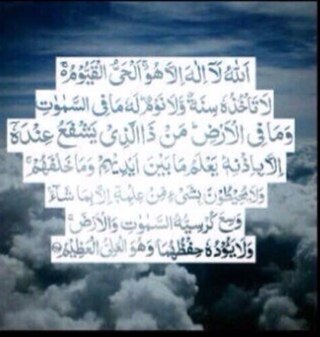 اَللّٰهُ لَآ اِلٰهَ اِلَّا هُوَ اَلْحَیُّ الْقَیُّوْمُ
لَا تَاْخُذُهٗ سِنَةٌ وَّلَا نَوْمٌ لَهٗ مَا فِی السَّمٰوٰتِ
وَمَا فِی الْاَرْضِ مَنْ ذَا الَّذِیْ یَشْفَعُ عِنْدَهٗٓ
اِلَّا بِاِذْنِهٖ یَعْلَمُ مَا بَیْنَ اَیْدِیْهِمْ وَمَا خَلْفَهُمْ
وَلَا یُحِیْطُوْنَ بِشَیْءٍ مِّنْ عِلْمِهٖٓ اِلَّا بِمَا شَآءَ
وَسِعَ كُرْسِیُّهُ السَّمٰوٰتِ وَالْاَرْضَ
وَلَا یَـُٔوْدُهٗ حِفْظُهُمَا وَهُوَ الْعَلِیُّ الْعَظِیْمُ